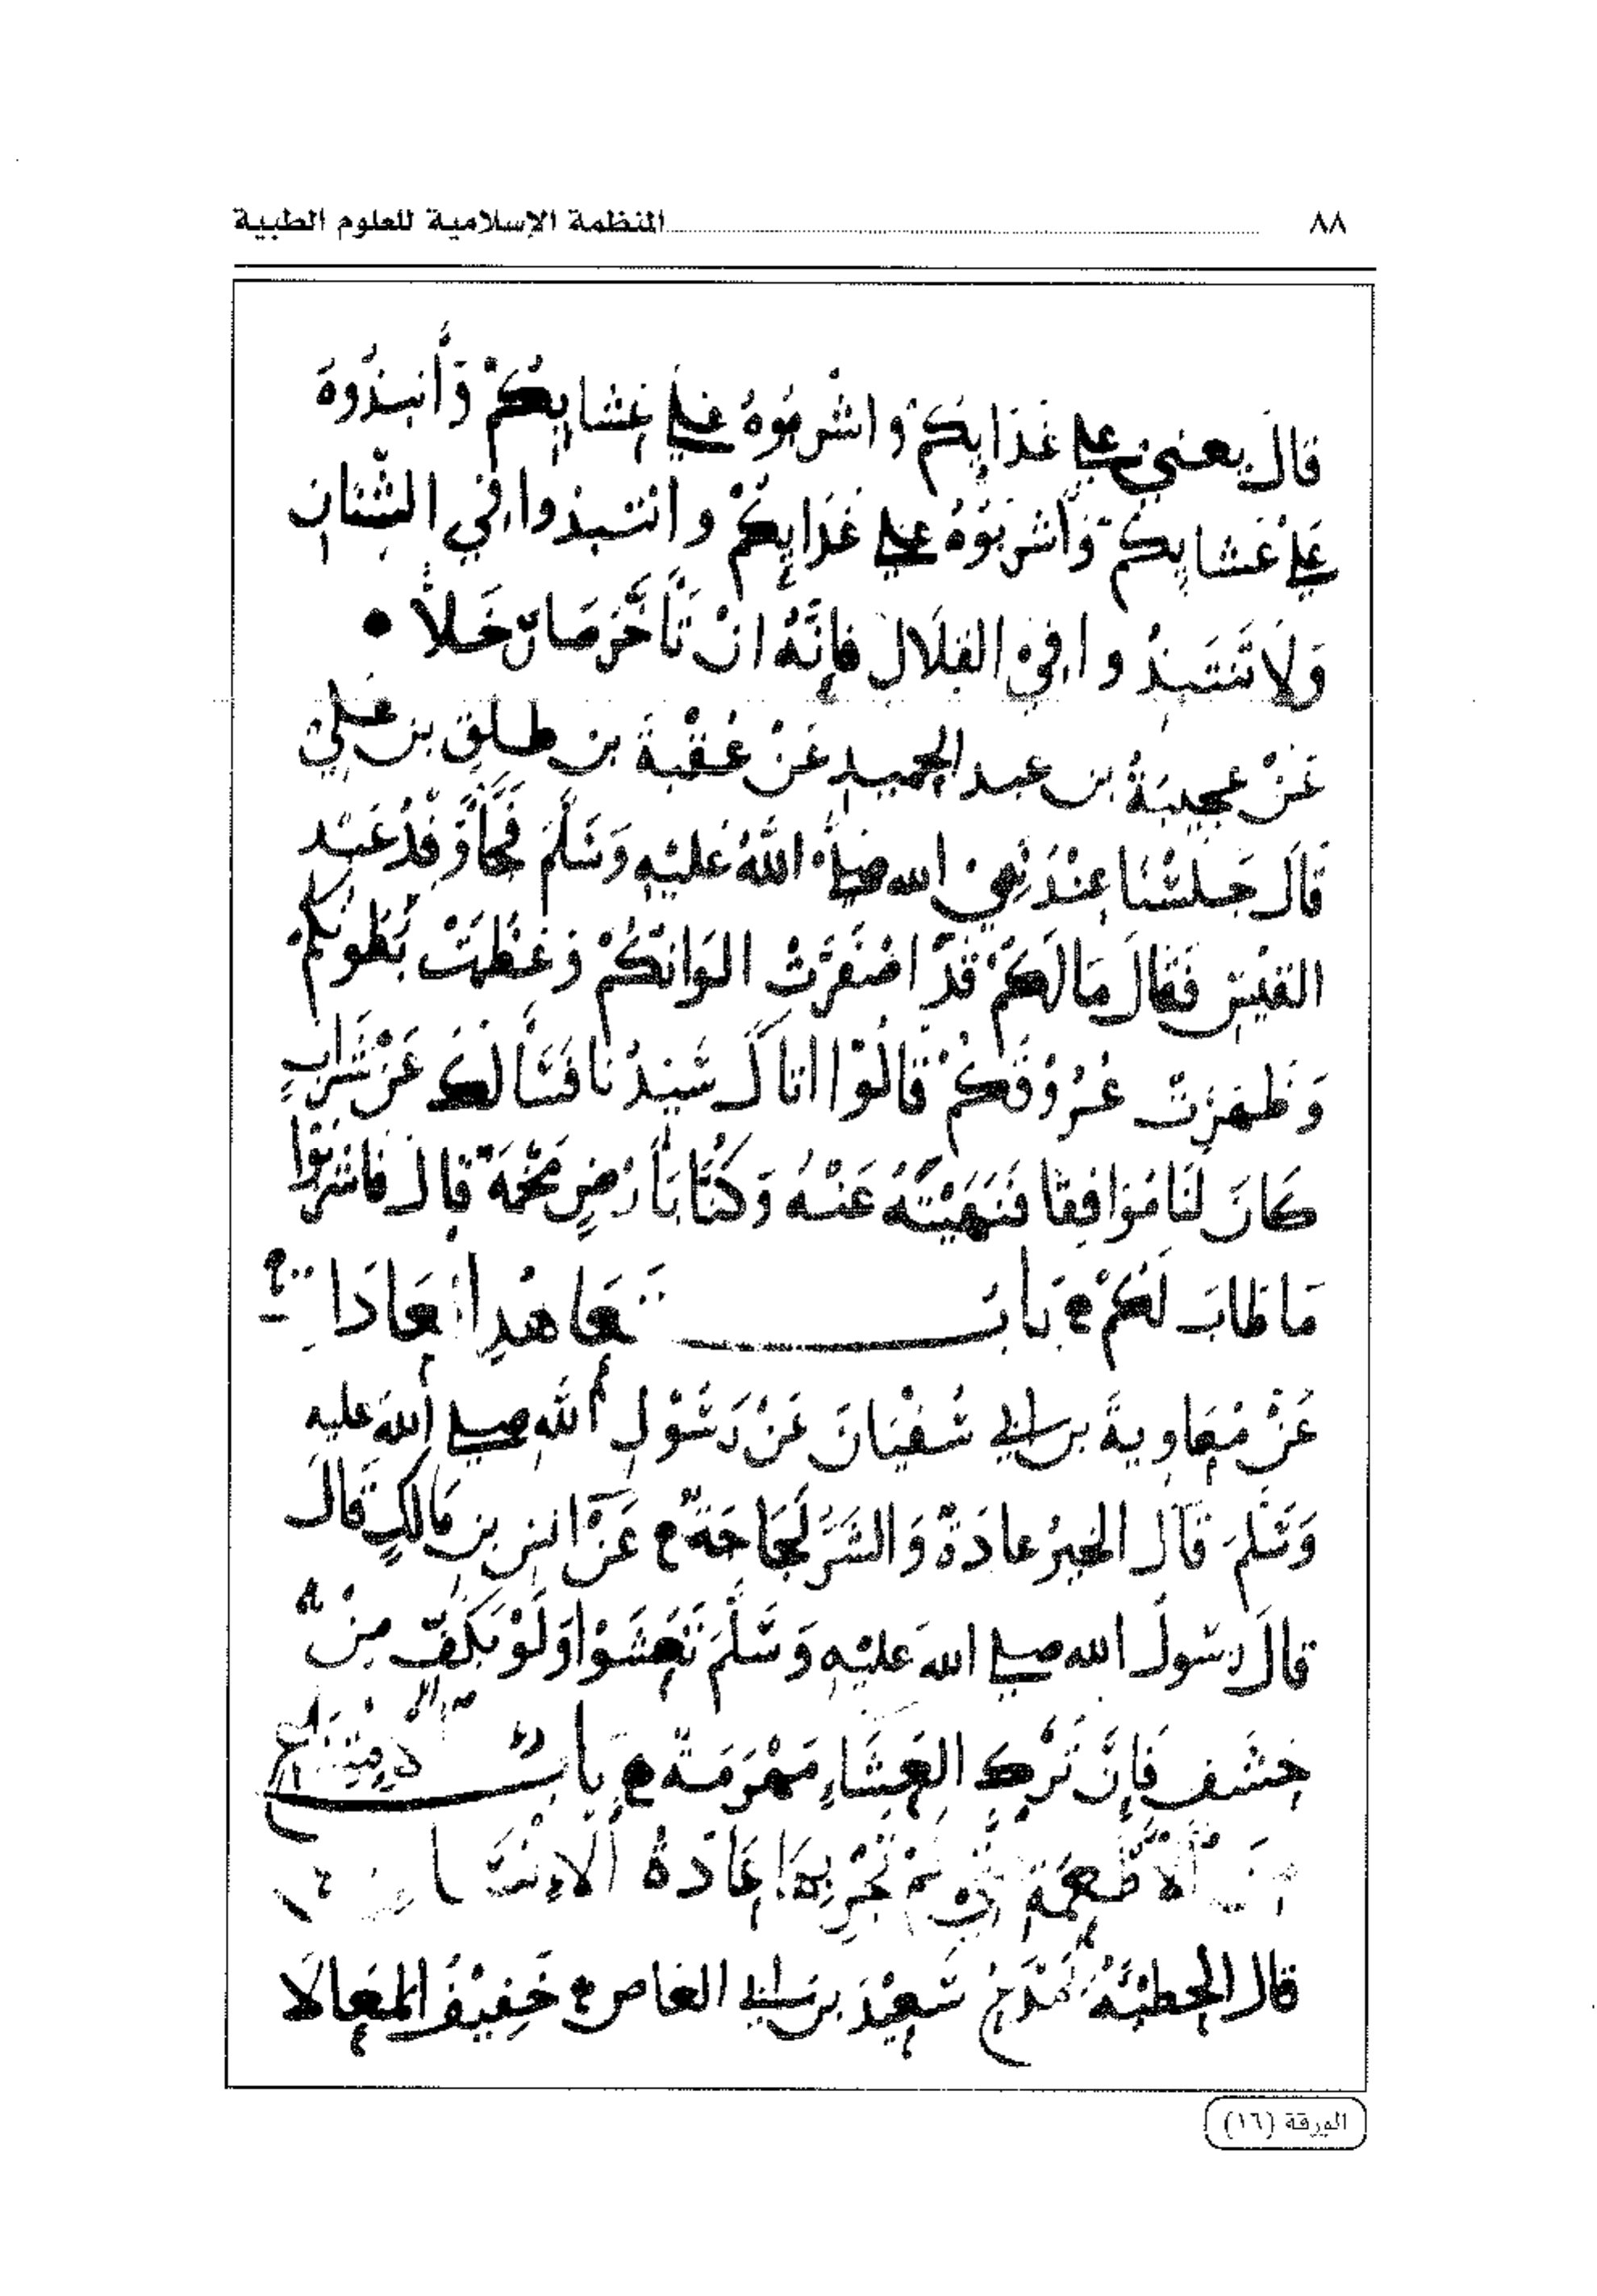 ٨٨ المنظمة الإسلامية للعلوم الطبية
قَالَ يعني علي غَذَايِكُمْ وَاشْرَبُوهُ عَلي عَشايِكُمْ وَأنبِذُوهُ
عَلي عَشايِكُمْ وَأشربُوهُ علي غَذايِكُمْ وانتبذوا في الشنان
وَلَا تَنْتَبِذُوا في القِلَالِ فَإِنَّهُ انْ تَأَخَّرَ صَارَ خَلاً
عَنْ عجيبَةُ بن عبد الحميد عَنْ عُقْبَةَ بن طلق بن علي
قَالَ جَلسْنَا عِنْدَ نبي الله صلي اللهُ عَليْهِ وَسَلَّمَ فَجَأ وَفْدُ عَبْد
القَيْسِ فَقَالَ مَا لَكُمْ قَدْ اصْفَرَّتْ الوَانكُمْ وَعَظُمَتْ بُطونكُم
وَظهَرَتْ عُرُوقكُمْ قَالُوْا اتاكَ سَيّدُنَا فَسَأَلكَ عَنْ شَرَابٍ
كَانَ لَنَا مُوَافِقًا فَنَهَيْتَهُ عَنْهُ وَكُنَّا بَأرْضٍ مُحِمَّةٍ قالَ فاشربُوْا
مَا طَابَ لَكُمْ بَابُ تَعَاهُدِ العَادَات
عَنْ مُعَاوية بن ابي سُفْيَانَ عَنْ رَسُوْلِ اللهِ صلي اللهَ عليه
وَسَلمَ قَالَ الخيرُ عادَةٌ وَالشَرُّ لَجَاجَةٌ عَنْ انس بن مَالكٍ قَالَ
قالَ رسُولَ الله صلي الله عَليْهِ وَسَلَّمَ تَعَشَوْا وَلَوْ بكَفٍّ مِنْ
حَشَفٍ فَإنَّ تَرْكَ العَشَاءِ مَهْرَمَةٌ بَابُ
مِنَ الأَطْعِمَةِ لَمْ تَجْرِ بِهَا عَادَةُ الاِنْسَان
قال الحطيئة يَمْدَحُ سَعِيْدَ بن ابي العَاص خَفِيْفُ المَعَا لَا
الورقة (١٦)